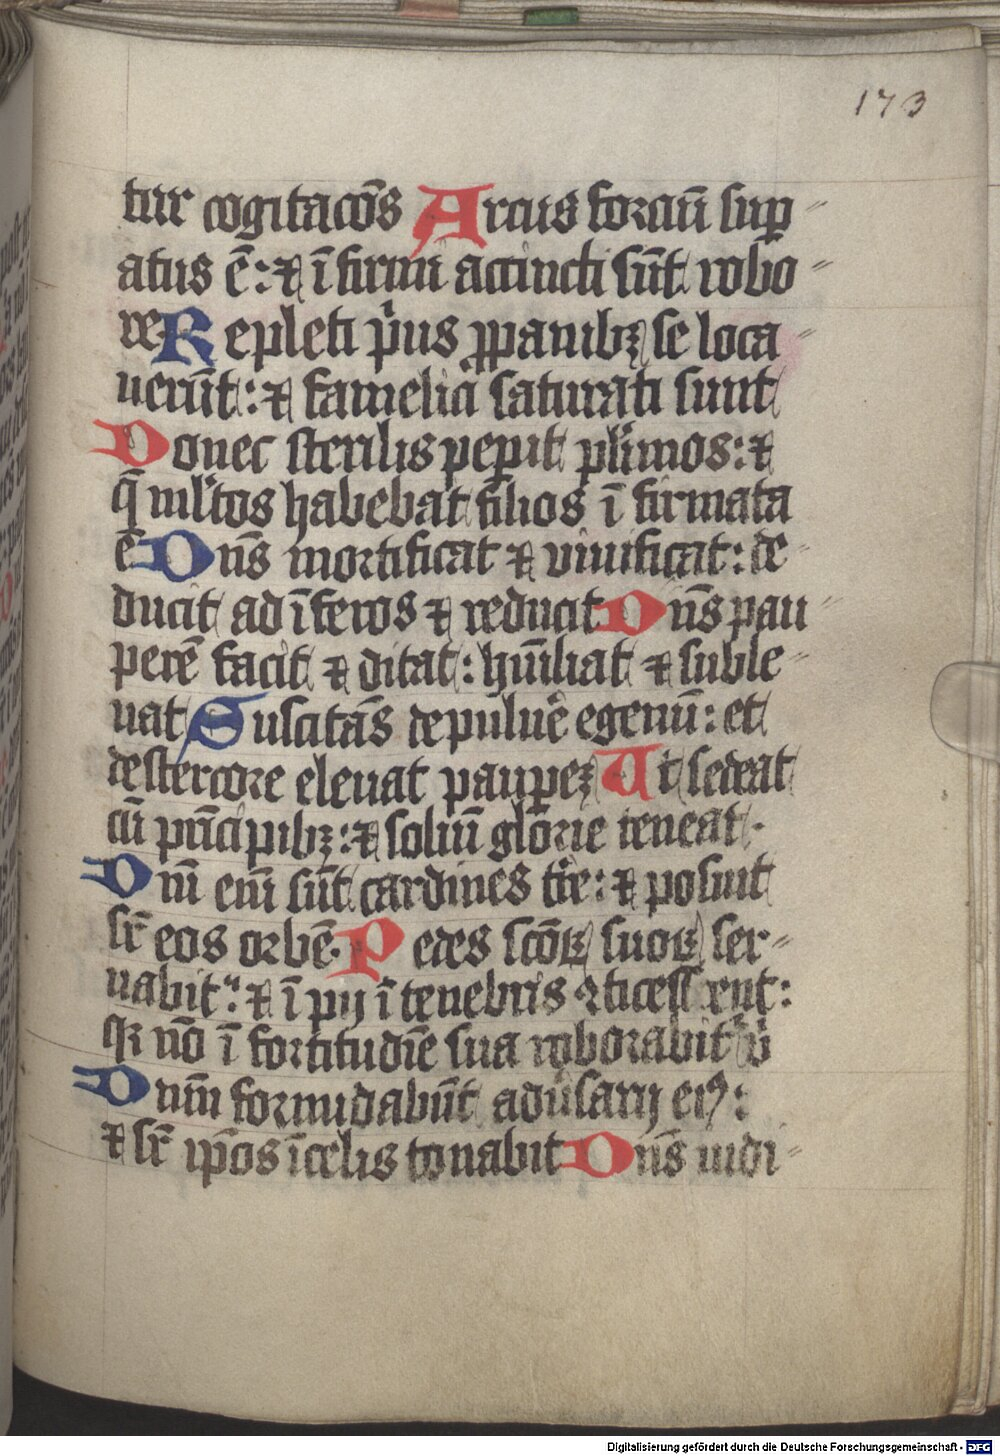 173
tur cogitacōs Arcus forciū sup̲
atus ē: ⁊ īfirmi accincti sūt robo
re Repleti p̓us ꝓpanibꝫ se loca
uerūt: ⁊ famelici saturati sunt
Donec sterilis pep̲it pl̓imos: ⁊
q̄ ml̓tos habebat filios īfirmata
ē Dn̄s mortificat ⁊ viuificat: de
ducit ad īferos ⁊ reducit Dn̄s pau
perē facit ⁊ ditat: hūiliat ⁊ suble
uat Suscitās de puluē egenū: et
de stercore eleuat paup̲eꝫ Ut sedeat
cū pn̄cipibꝫ: ⁊ soliū glōrie teneat.
Dn̄i em̄ sūt cardines tr̄e: ⁊ posuit
sr̄ eos orbē. Pedes scōꝝ suoꝝ ser
uabit: ⁊ īpij ī tenebris ꝯticescent:
qꝛ nō ī fortitudīe sua roborabit͛ v̓
Dn̄m formidabūt adūsarij eiꝰ:
⁊ sr̄ ip̄os ī celis tonabit Dn̄s iudi
Digitalisierung gefördert durch die Deutsche Forschungsgemeinschaft - DFG